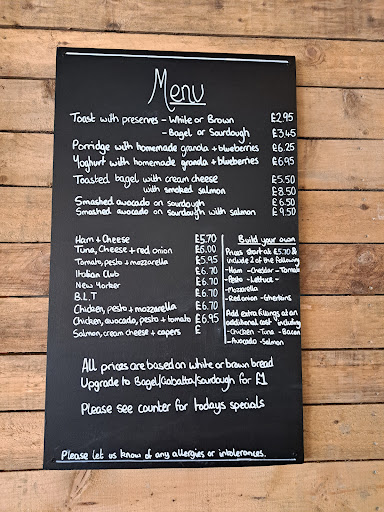 Menu
Toast with preserves - White or Brown £2.95
- Bagel or Sourdough £3.45
Porridge with homemade granola + blueberries £6.25
Yoghurt with homemade granola + blueberries £6.95
Toasted bagel with cream cheese £5.50
with smoked salmon £8.50
Smashed avocado on sourdough £6.50
Smashed avocado on sourdough with salmon £9.50
Ham + Cheese £5.70
Tuna, Cheese + red onion £6.00
Tomato, pesto + mozzarella £5.95
Italian Club £6.70
New Yorker £6.70
B.L.T £6.70
Chicken, pesto + mozzarella £6.70
Chicken, avocado, pesto + tomato £6.95
Salmon, cream cheese + capers £
Build your own
Prices start at £5.70 &
include 2 of the following
-Ham -Cheddar -Tomato
-Pesto -Lettuce -
-Mozzarella
-Red onion -Gherkins
Add extra fillings at an
additional cost including
-Chicken -Tuna -Bacon
-Avocado -Salmon
All prices are based on white or brown bread
Upgrade to Bagel/Ciabatta/Sourdough for £1
Please see counter for todays specials
Please let us know of any allergies or intolerances.